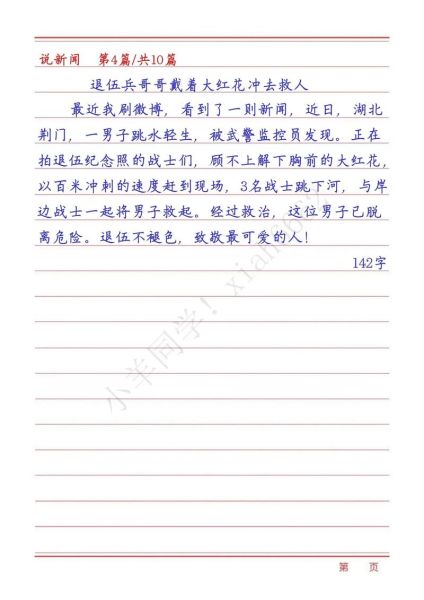 说新闻 第4篇/共10篇
退伍兵哥哥戴着大红花冲去救人
最近我刷微博，看到了一则新闻，近日，湖北
荆门，一男子跳水轻生，被武警监控员发现。正在
拍退伍纪念照的战士们，顾不上解下胸前的大红花，
以百米冲刺的速度赶到现场，3名战士跳下河，与岸
边战士一起将男子救起。经过救治，这位男子已脱
离危险。退伍不褪色，致敬最可爱的人！
142字
小羊同学！
第 页